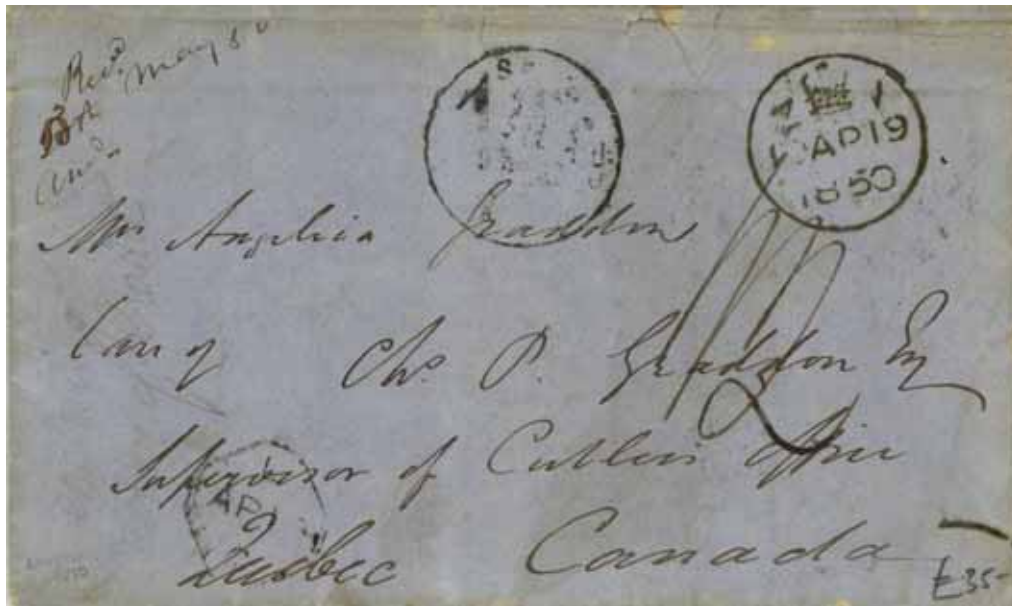 Recd. May 8
AP 19
1850
Mrs Angelica Graddon
Care of Chs. P. Graddon Esq
Supervisor of Cullers Office
AP
Quebec Canada
£35-